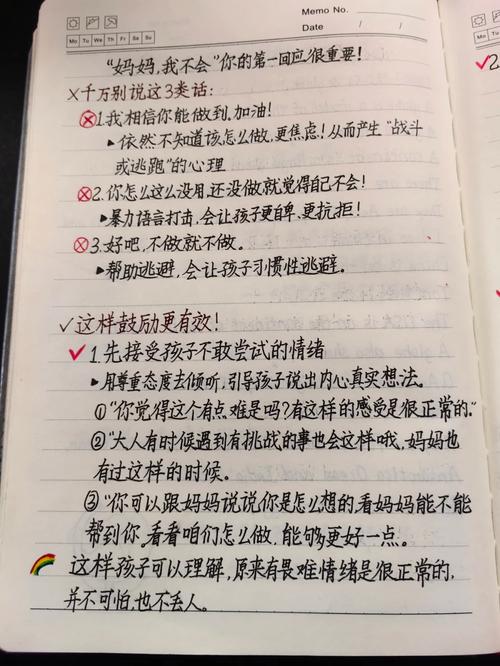 Memo No.
Mo Tu We Th Fr Sa Su
Date / /
“妈妈,我不会”你的第一回应,很重要!
×千万别说这3类话:
1.我相信你能做到,加油!
▸依然不知道该怎么做,更焦虑!从而产生“战斗
或逃跑”的心理
2.你怎么这么没用,还没做就觉得自己不会!
▸暴力语言打击,会让孩子更自卑、更抗拒!
3.好吧,不做就不做。
▸帮助逃避,会让孩子习惯性逃避。
✓这样鼓励更有效!
✓1.先接受孩子不敢尝试的情绪
▸用尊重态度去倾听,引导孩子说出内心真实想法。
①“你觉得这个有点难是吗?有这样的感受是很正常的.”
②“大人有时候遇到有挑战的事也会这样哦,妈妈也
有过这样的时候。
③“你可以跟妈妈说说你是怎么想的看妈妈能不能
帮到你。看看咱们怎么做,能够更好一点。
这样孩子可以理解,原来有畏难情绪是很正常的,
并不可怕,也不丢人。
✓2